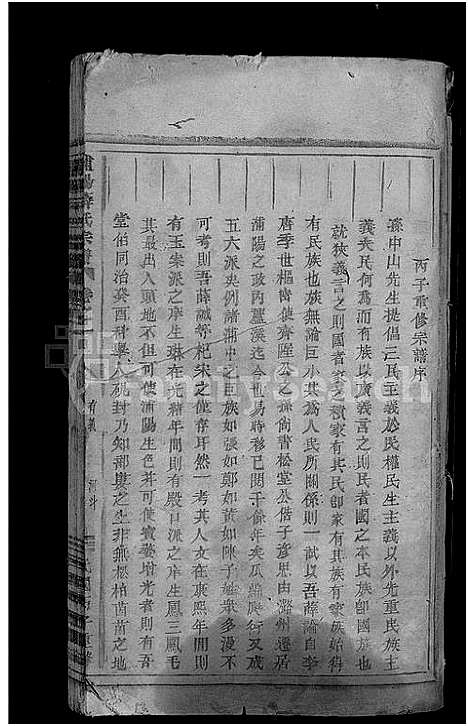 丙子重修宗譜序
孫中山先生提倡三民主義於民權民生主義以外先重民族主
義夫民何為而有族以廣義言之則民者國之本民族即國族也
就狹義言之則國者家之積家有其民即家有其族有家族始得
有民族也族無論巨小其為人民所關係則一試以吾薛論自李
唐季世樞齊陞公之孫尚書松堂公偕子彥忠由潞州遷居
蒲陽之政內薑溪迄今世易時移已閱千餘年矣瓜瓞衍又成
五六派夫例諸莆中之巨族如張如鄭如黃如陳子姓眾多漫不
可考則吾薛誠等杞宋之僅存耳然一考其人文在康熙年間則
有玉宋派之庠生琳在光緒年間則有殿口派之庠生鳳三鳳毛
其最出入頭地不但可使浦陽生色并可使寶婺增光者則有吾
堂伯同治癸酉科舉人硯封乃知鄒慶之生非無樅柏茵莆之地
薛氏宗譜
民國丙子重修
FamilySearch